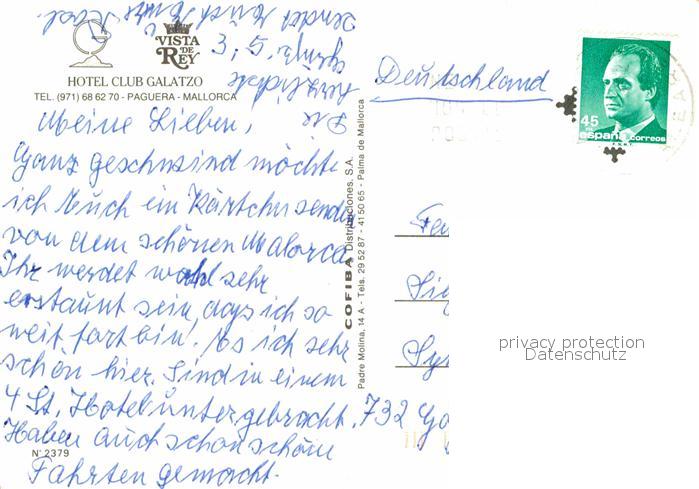 VISTA
DE
REY
HOTEL CLUB GALATZO
TEL. (971) 68 62 70 - PAGUERA - MALLORCA
Meine Lieben,
Ganz geschwind möchte
ich Euch ein Kärtchen senden
von dem schönen Malorca
Ihr werdet wohl sehr
erstaunt sein, dass ich so
weit fort bin! Es ich sehr
schön hier. Sind in einem
4 St. Hotel untergebracht.
Haben auch schon schöne
Fahrten gemacht.
Die
herzlichste
sendet Euch
Nº 2379
COFIBA Distribuciones, S.A.
Padre Molina, 14 A - Tels. 29 52 87 - 41 50 65 - Palma de Mallorca
Deutschland
45
españa correos
Fa
Sig
732
privacy protection
Datenschutz